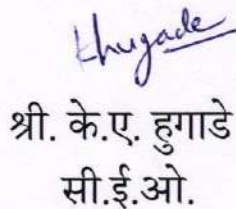 Khugade
श्री. के.ए. हुगाडे
सी.ई.ओ.